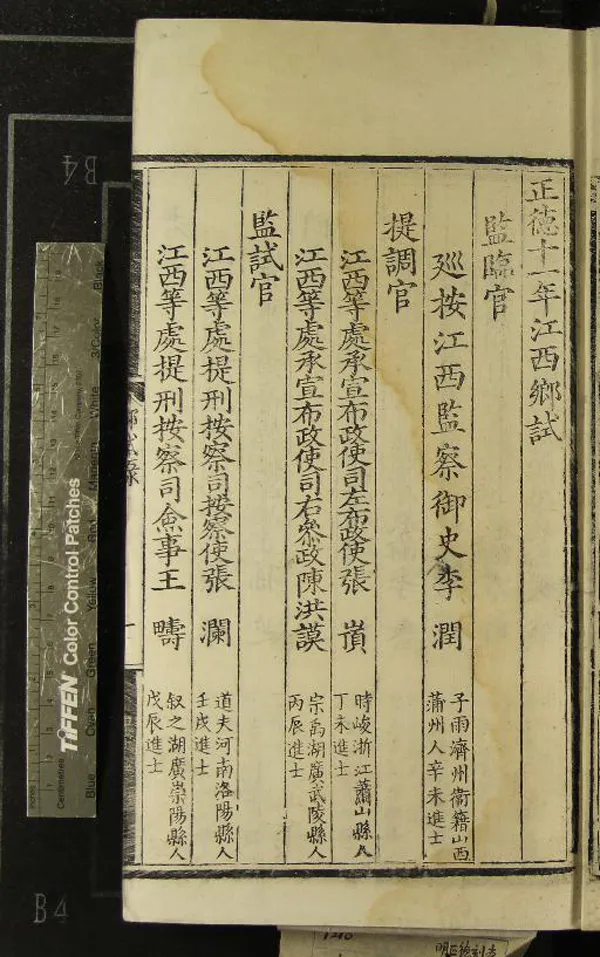 正德十一年江西鄉試
監臨官
廵按江西監察御史李潤
子雨濟州衛籍山西
蒲州人辛未進士
提調官
江西等處承宣布政使司左布政使張嵿
時峻浙江蕭山縣人
丁未進士
江西等處承宣布政使司右叅政陳洪謨
宗禹湖廣武陵縣人
丙辰進士
監試官
江西等處提刑按察司按察使張瀾
道夫河南洛陽縣人
壬戌進士
江西等處提刑按察司僉事王疇
叙之湖廣崇陽縣人
戊辰進士
B4
B4
TIFFEN Color Control Patches
Blue Cyan Green Yellow Red Magenta White 3/Color Black
Inches
Centimetres